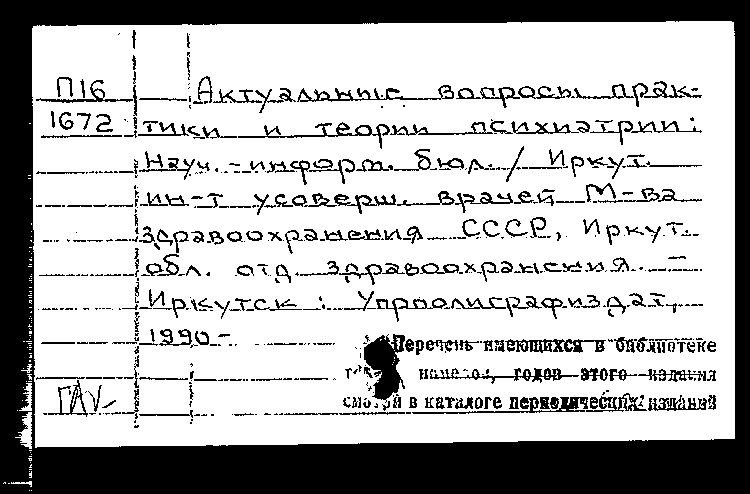 П16 Актуальные вопросы прак-
1672 тики и теории психиатрии:
Науч.-информ. бюл. / Иркут.
ин-т усоверш. врачей М-ва
здравоохранения СССР, Иркут.
обл. отд. здравоохранения. –
Иркутск : Упрполиграфиздат,
1990 -
Перечень имеющихся в библиотеке
годов этого издания
смотри в каталоге периодических изданий